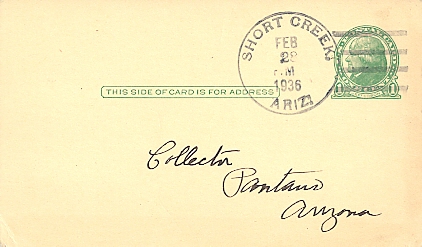 SHORT CREEK,
FEB
28
M
1936
ARIZ.
THIS SIDE OF CARD IS FOR ADDRESS
1 1
Collector
Pantano
Arizona